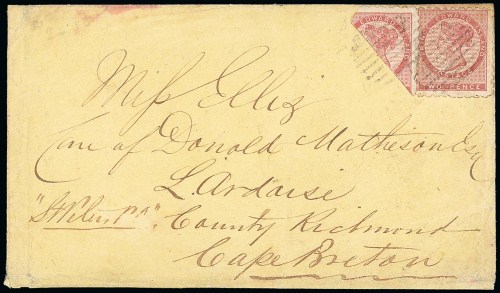 EDWARD
EDWARD
TWO PENCE
Miss Eliz
Care of Donald Matheson Esq
L'Ardoise
"St Peters P.O." County Richmond
Cape Breton